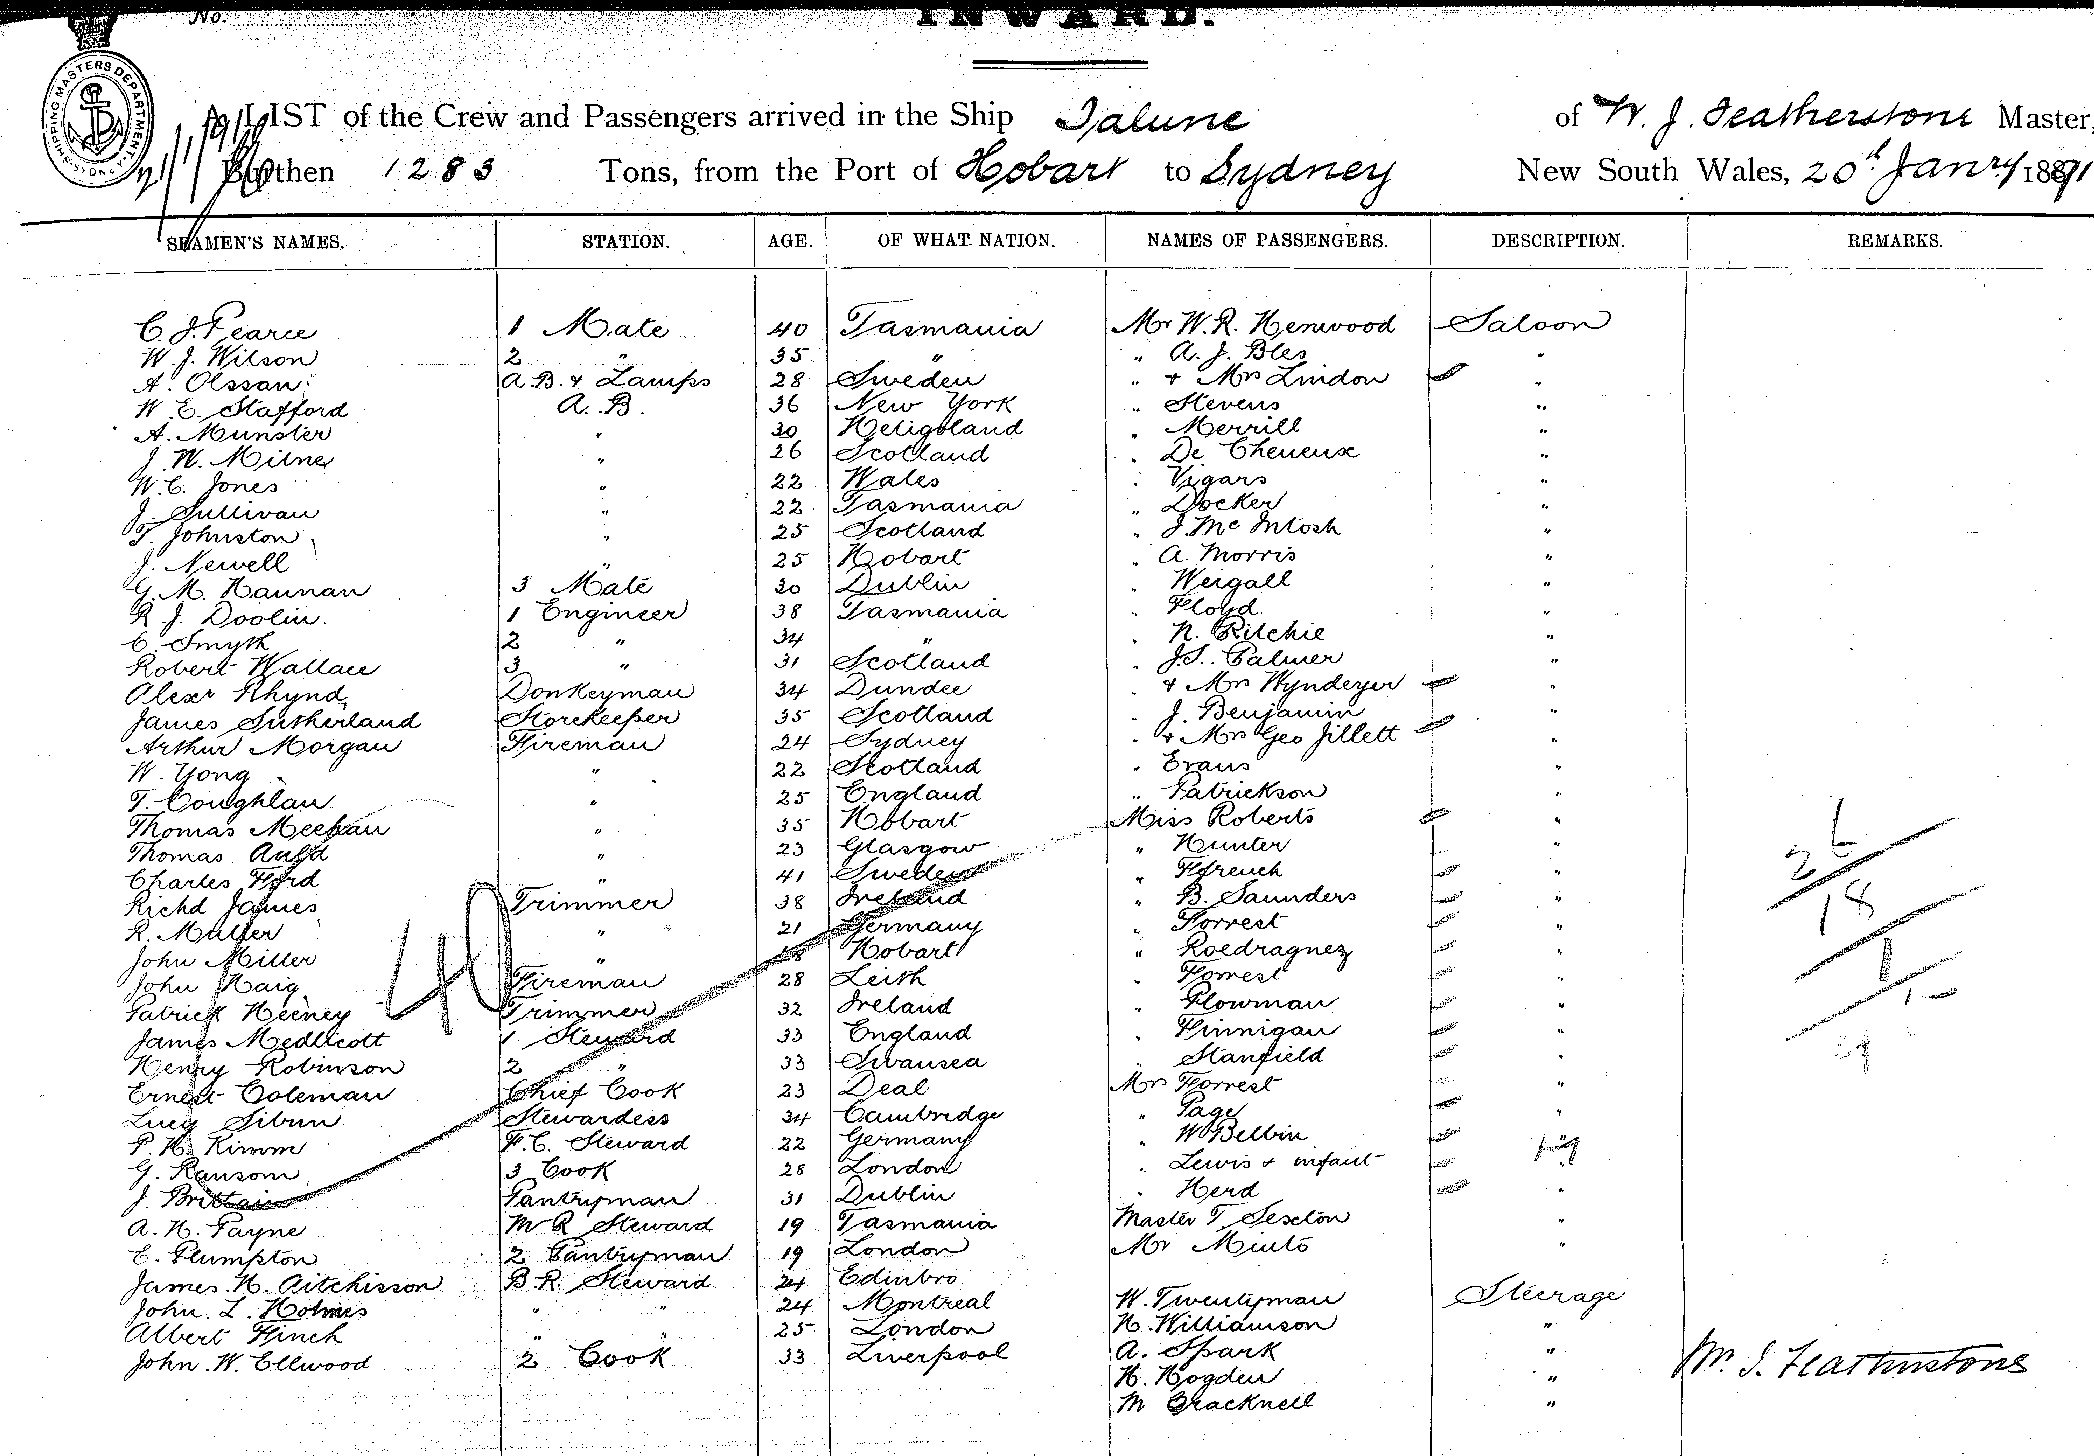 No.
INWARD.
SHIPPING MASTERS DEPARTMENT SYDNEY
A LIST of the Crew and Passengers arrived in the Ship Talune of W. J. Featherstone Master,
Burthen 1283 Tons, from the Port of Hobart to Sydney New South Wales, 20th Janry 1891
SEAMEN'S NAMES. STATION. AGE. OF WHAT NATION. NAMES OF PASSENGERS. DESCRIPTION. REMARKS.
C. J. Pearce 1 Mate 40 Tasmania Mr W. R. Henwood Saloon
W. J. Wilson 2 " 35 " " A. J. Bles "
A. Olssan A.B. & Lamps 28 Sweden " & Mrs Lindon "
W. E. Stafford A.B. 36 New York " Stevens "
A. Munster " 30 Heligoland " Merrill "
J. W. Milne " 26 Scotland " De Cheneux "
W. C. Jones " 22 Wales " Vigars "
J. Sullivan " 22 Tasmania " Docker "
T. Johnston " 25 Scotland " J. McIntosh "
J. Newell " 25 Hobart " A. Morris "
G. M. Hannan 3 Mate 30 Dublin " Weigall "
R. J. Doolin 1 Engineer 38 Tasmania " Floyd "
C. Smyth 2 " 34 " " N. Ritchie "
Robert Wallace 3 " 31 Scotland " J.S. Palmer "
Alexr Rhynd Donkeyman 34 Dundee " & Mrs Wyndeyer "
James Sutherland Storekeeper 35 Scotland " J. Benjamin "
Arthur Morgan Fireman 24 Sydney " & Mrs Geo Jillett "
W. Yong " 22 Scotland " Evans "
T. Coughlan " 25 England " Patrickson "
Thomas Meehan " 35 Hobart Miss Roberts "
Thomas Auld " 23 Glasgow " Hunter "
Charles Ford " 41 Sweden " Ffrench "
Richd James Trimmer 38 Ireland " B. Saunders "
R. Muller " 21 Germany " Forrest "
John Miller " 18 Hobart " Roedragnez "
John Haig Fireman 28 Leith " Forrest "
Patrick Heeney Trimmer 32 Ireland " Plowman "
James Medlicott 1 Steward 33 England " Finnigan "
Henry Robinson 2 " 33 Swansea " Stanfield "
Ernest Coleman Chief Cook 23 Deal Mrs Forrest "
Lucy Sibun Stewardess 34 Cambridge " Page "
P. H. Kimm F.C. Steward 22 Germany " W Bellin "
G. Ransom 3 Cook 28 London " Lewis & infant "
J. Brittain Pantryman 31 Dublin " Herd "
A. H. Payne M R Steward 19 Tasmania Master T Sexton "
E. Plumpton 2 Pantryman 19 London Mr Minto "
James H. Aitchisson B R Steward 24 Edinbro
John L. Holmes " " 24 Montreal W. Twentyman Steerage
Albert Finch " " 25 London H. Williamson "
John W. Ellwood 2 Cook 33 Liverpool A. Spark "
H. Hogden "
M Cracknell "
40
26
18
1
Wm. J. Featherstone